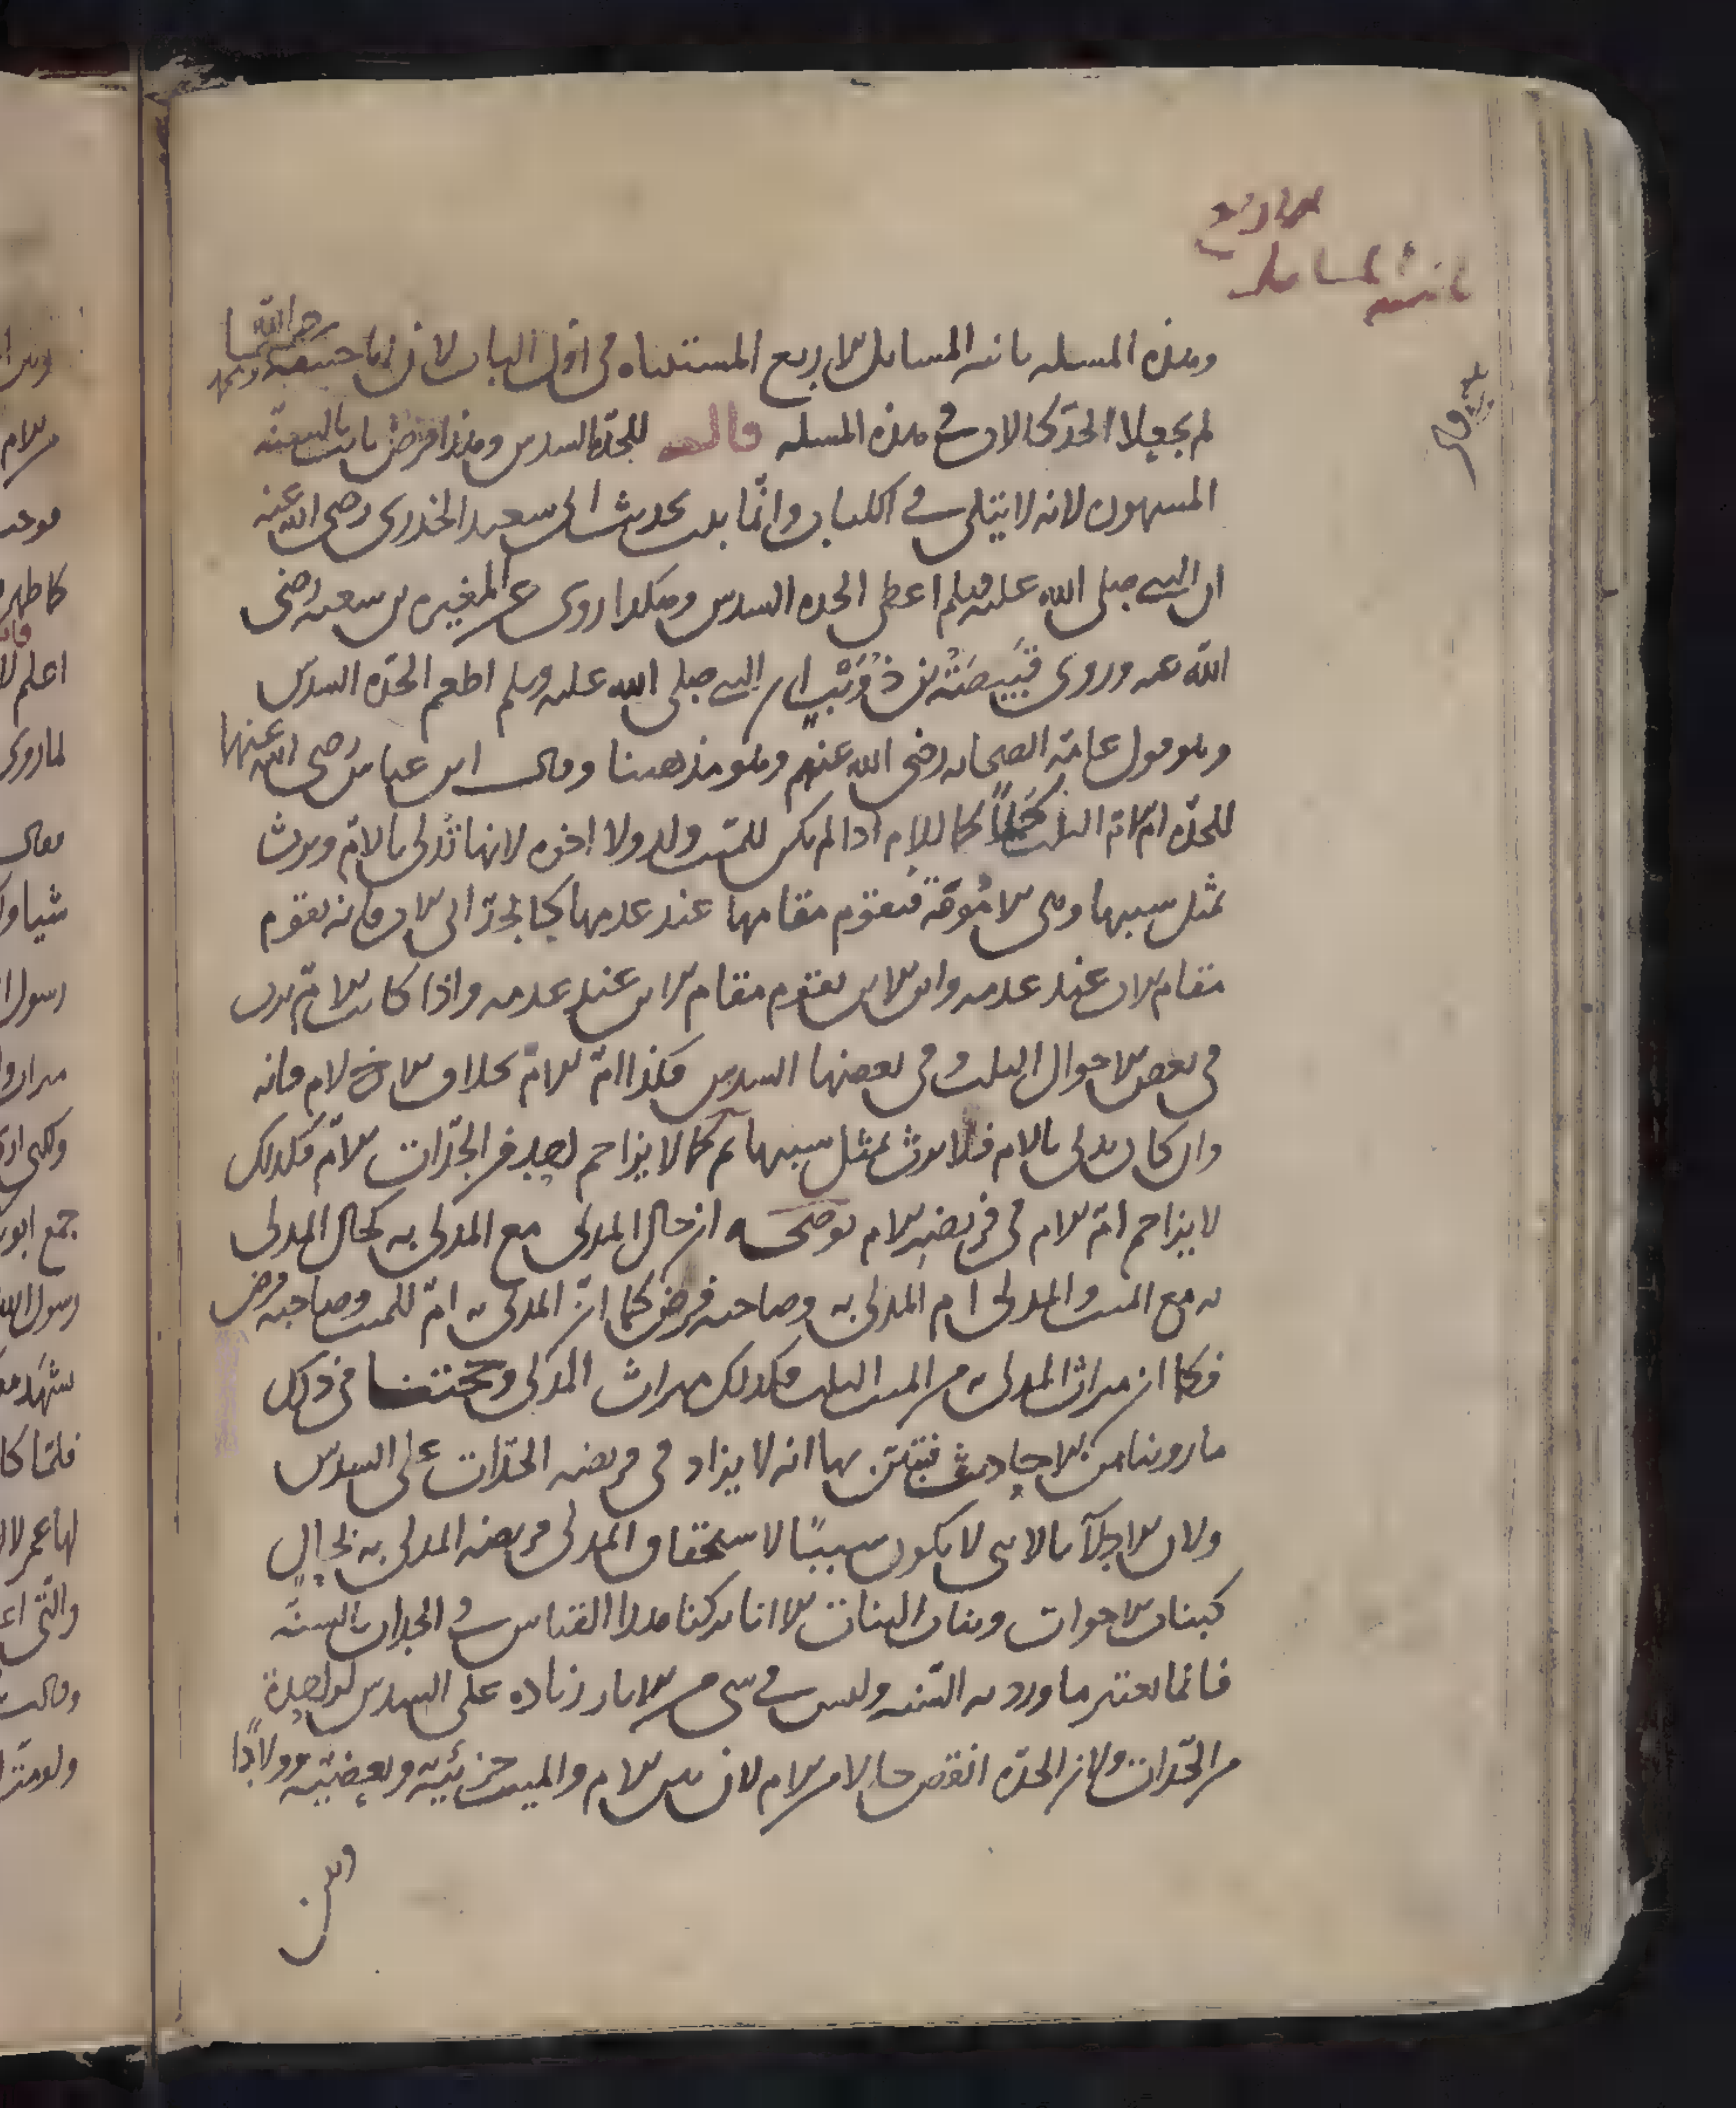 ثانية المسايل الاربع
وهذه المسله ثانيه المسايل الاربع المستثناه في اول الباب لان ابا حنيفه ومحمد رحمهما الله
لم يجعلا الجدّ كالاب في هذه المسله قال للجدّه السدس وهذا فرض ثابت بالسنّه
المشهوره لانه لا يتلى في الكتاب وانّما ثبت بحديث ابي سعيد الخدري رضى الله عنه
ان النبي صلى الله عليه وسلم اعطى الجده السدس وهكذا روى عن المغيره بن شعبه رضى
الله عنه وروى قَبِيصَة بن ذُؤَيْب ان النبي صلى الله عليه وسلم اطعم الجدّه السدس
وهو قول عامّة الصحابه رضى الله عنهم وهو مذهبنا وقال ابن عباس رضى الله عنهما
للجدّه امّ الامّ الثلث كملًا كما للام اذا لم يكن للميّت ولد ولا اخوه لانها تُدلى بالامّ وترث
بمثل سببها وهي الامومّة فتقوم مقامها عند عدمها كالجدّ ابي الاب فانه يقوم
مقام الاب عند عدمه وابن الابن يقوم مقام الابن عند عدمه واذا كانت الامّ ترث
في بعض الاحوال الثلث وفي بعضها السدس فكذا امّ الامّ بخلاف الاخ لام فانه
وان كان يدلى بالام فلا يرث بمثل سببها ثم كما لا يزاحم احد من الجدّات الامّ فكذلك
لا يزاحم امّ الام في فريضه الام توضحه ان حال المدلى مع المدلى به كحال المدلى
به مع الميت والمدلى ام المدلى به وصاحبه فرض كما انّ المدلى به امّ للميت وصاحبه فرض
فكما ان ميراث المدلى به من الميت الثلث فكذلك ميراث المدلى وحجتنا في ذلك
ما روينا من الاحاديث فتبيّن بها انه لا يزاد في فريضه الجدّات على السدس
ولان الادلآ بالانثى لا يكون سببًا لاستحقاق المدلى فريضه المدلى به بحالٍ
كبنات الاخوات وبنات البنات الا انا تركنا هذا القياس في الجدات بالسنّه
فانما يعتبر ما ورد به السّنه وليس في شي من الاثار زياده على السدس لواحدة
من الجدّات ولان الجدّه انقص حالا من الام لان بين الام والميت جزئيّة وبعضيّة وولادًا
وبين